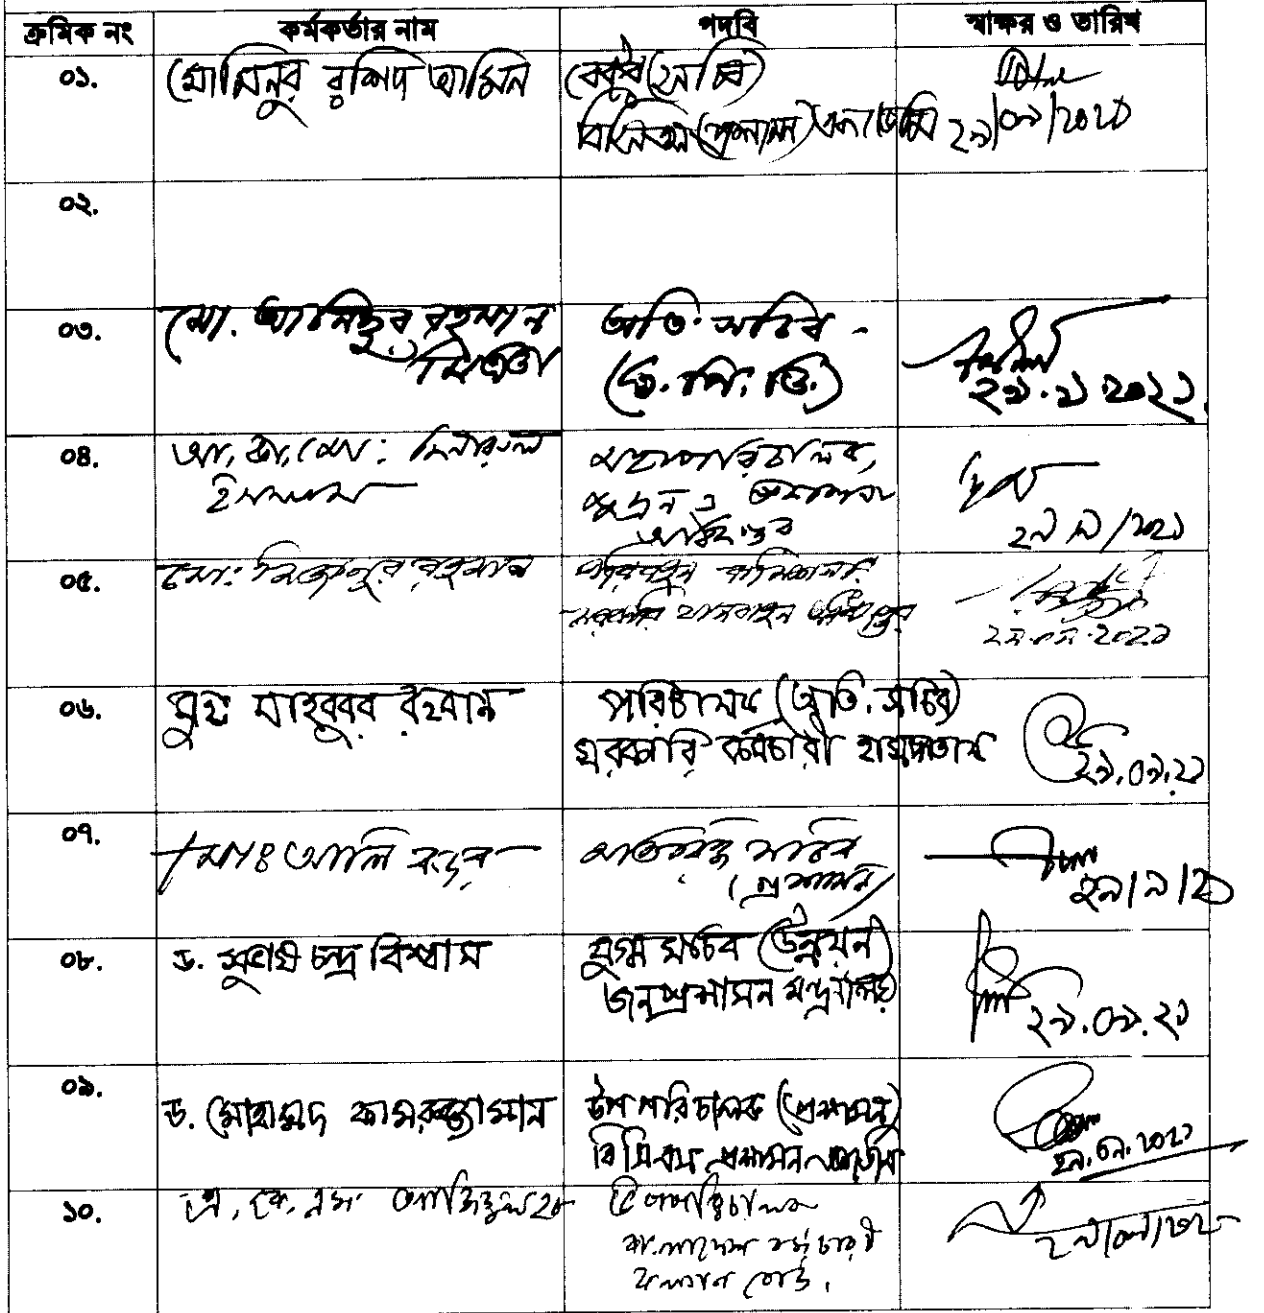 ক্রমিক নং কর্মকর্তার নাম পদবি স্বাক্ষর ও তারিখ
০১. মোমিনুর রশিদ আমিন
(প্রশাসন) ২৯/০৯/২০২১
০২.
০৩. মো. আনিছুর রহমান অতি. সচিব
মিঞা (সি.পি.টি.) ২৯.৯.২০২১
০৪. মহাপরিচালক,
ইসলাম মুদ্রণ ও প্রকাশনা
অধিদপ্তর ২৯/৯/২০২১
০৫. মো: মিজানুর রহমান পরিবহন কমিশনার
সরকারি যানবাহন অধিদপ্তর ২৯.০৯.২০২১
০৬. মুহঃ মাহবুবর রহমান পরিচালক (অতি. সচিব)
সরকারি কর্মচারী হাসপাতাল ২৯.০৯.২১
০৭. মোঃ আলি কদর অতিরিক্ত সচিব
(প্রশাসন) ২৯/৯/২১
০৮. ড. সুভাষ চন্দ্র বিশ্বাস যুগ্ম সচিব (উন্নয়ন)
জনপ্রশাসন মন্ত্রণালয় ২৯.০৯.২১
০৯. ড. মোহাম্মদ কামরুজ্জামান উপপরিচালক (প্রশাসন)
বিসিএস প্রশাসন একাডেমি ২৯.০৯.২০২১
১০. এ, কে, এম উপপরিচালক
কর্মচারী
কল্যাণ বোর্ড।